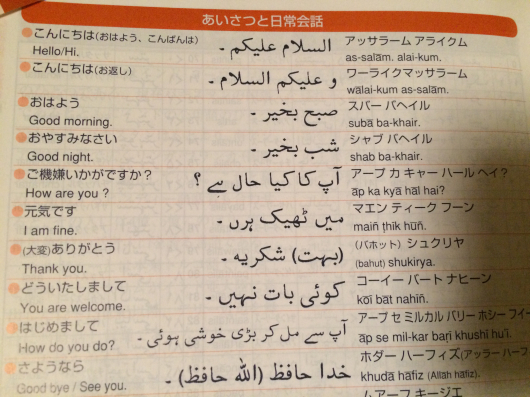 あいさつと日常会話
こんにちは(おはよう、こんばんは)
Hello/Hi.
السلام علیکم ۔
アッサラーム アライクム
as-salām. alai-kum.
こんにちは(お返し)
و علیکم السلام ۔
ワーライクマッサラーム
wālai-kum as-salām.
おはよう
Good morning.
صبح بخیر ۔
スバー バヘイル
subā ba-khair.
おやすみなさい
Good night.
شب بخیر ۔
シャブ バヘイル
shab ba-khair.
ご機嫌いかがですか？
How are you ?
آپ کا کیا حال ہے ؟
アープ カ キャー ハール ヘイ？
āp ka kyā hāl hai?
元気です
I am fine.
میں ٹھیک ہوں ۔
マエン ティーク フーン
maiñ ṭhik hūñ.
(大変)ありがとう
Thank you.
(بہت) شکریہ ۔
(バホット) シュクリヤ
(bahut) shukirya.
どういたしまして
You are welcome.
کوئی بات نہیں ۔
コーイー バート ナヒーン
kōī bāt nahiñ.
はじめまして
How do you do?
آپ سے مل کر بڑی خوشی ہوئی ۔
アープ セ ミルカル バリー ホシー フイー
āp se mil-kar baṛi khushī hu'ī.
さようなら
Good bye / See you.
خدا حافظ (الله حافظ) ۔
ホダー ハーフィズ(アッラー ハーフ
khudā hāfiz (Allah hāfiz).
ムアーフ キージエ